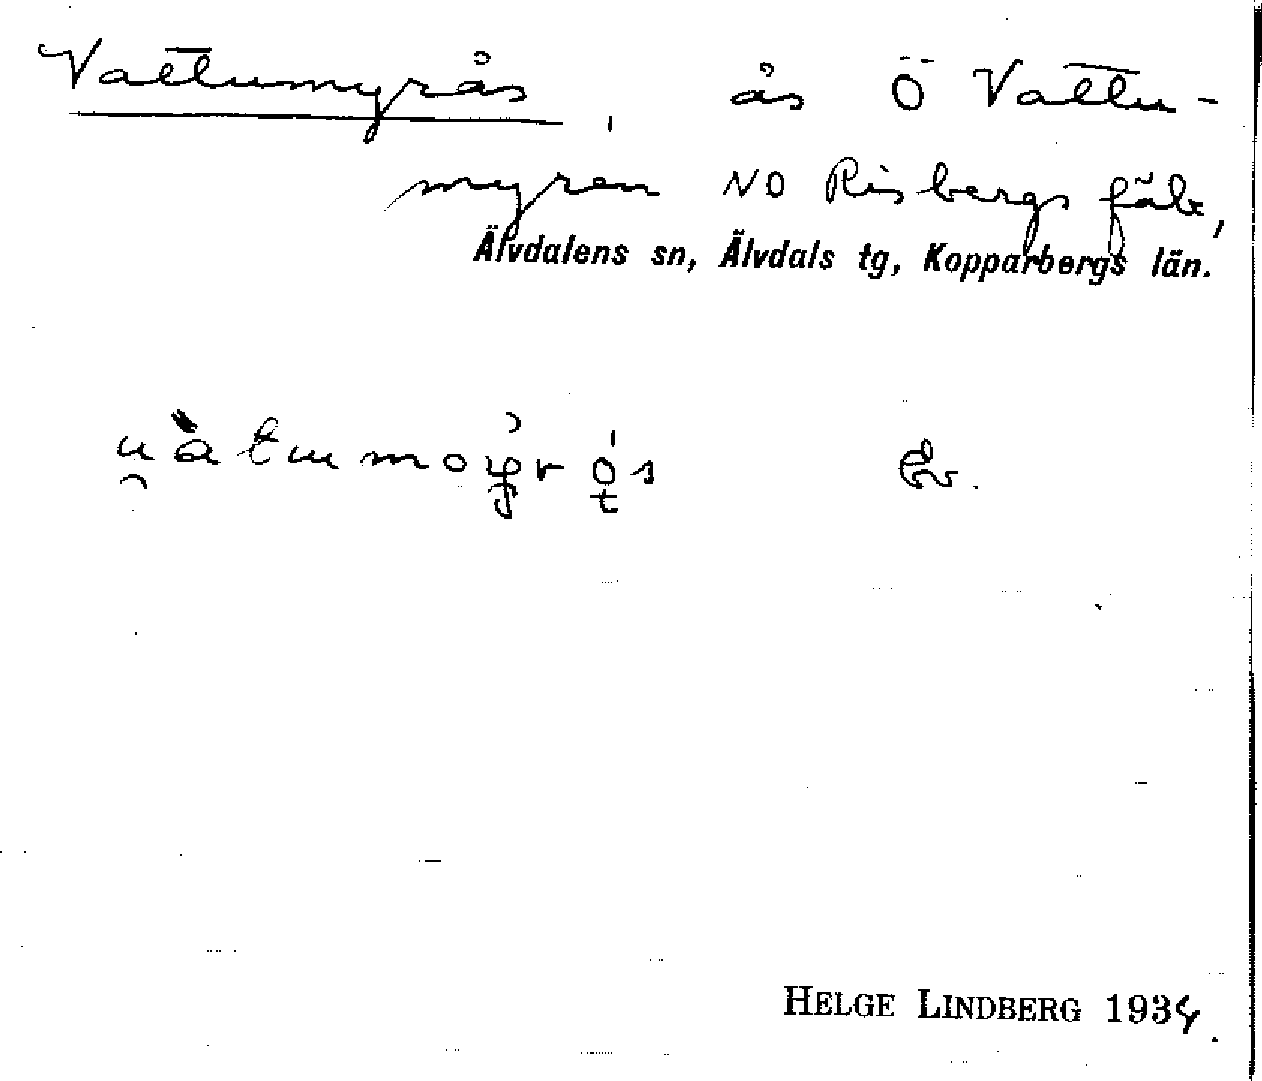 Vattumyrås, ås Ö Vattu-
myren NO Risbergs fäb,
Älvdalens sn, Älvdals tg, Kopparbergs län.
HELGE LINDBERG 1934